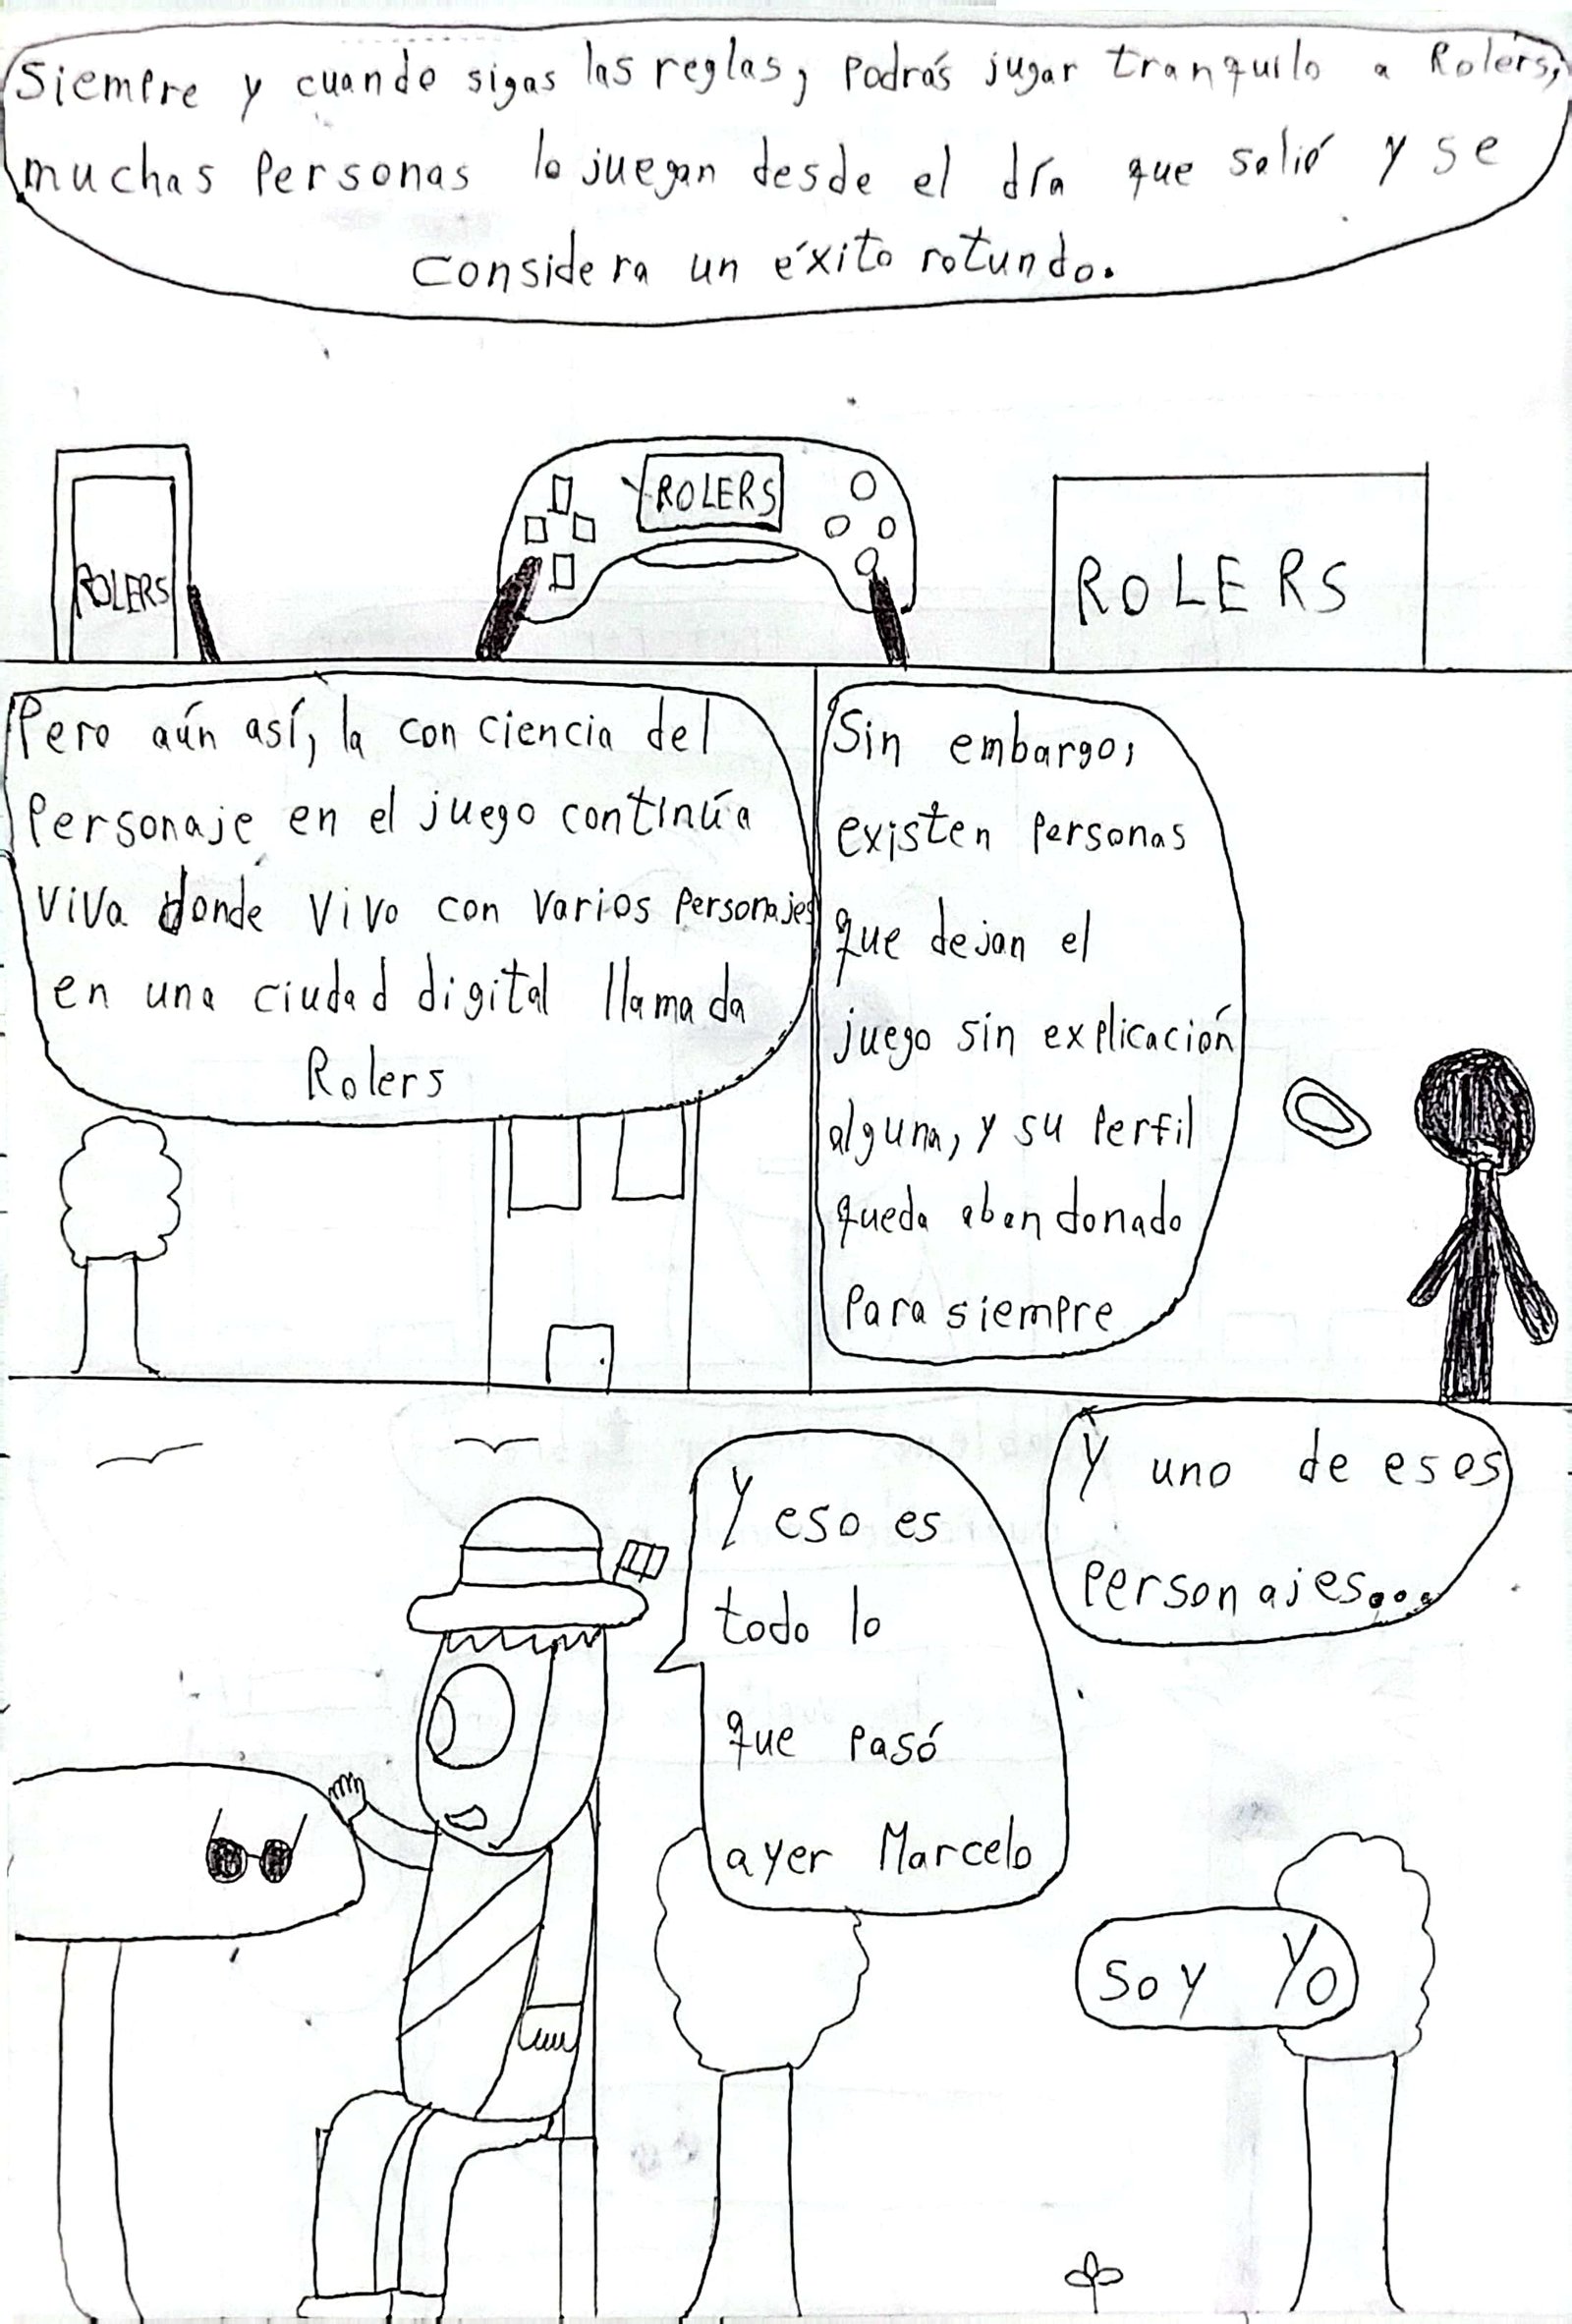 Siempre y cuando sigas las reglas, podrás jugar tranquilo a Rolers,
muchas personas lo juegan desde el día que salió y se
considera un éxito rotundo.
ROLERS
ROLERS
ROLERS
Pero aún así, la conciencia del
personaje en el juego continúa
viva donde vivo con varios personajes
en una ciudad digital llamada
Rolers
Sin embargo,
existen personas
que dejan el
juego sin explicación
alguna, y su perfil
queda abandonado
para siempre
Y eso es
todo lo
que pasó
ayer Marcelo
Y uno de esos
personajes...
soy yo